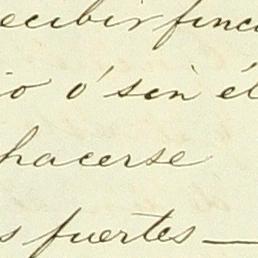 ecibir finc
io ó sin él
hacerse
s fuertes—